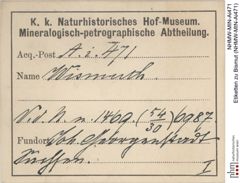 K. k. Naturhistorisches Hof-Museum.
Mineralogisch-petrographische Abtheilung.
Acq.-Post A.i.471
Name Wismuth.
V.d.N.u. 1469. (54/30) 6987.
Fundort Joh. Georgenstadt
Sachsen
I
NHMW-MIN-AI471
Etiketten zu Bismut (NHMW-MIN-AI471)
nhm